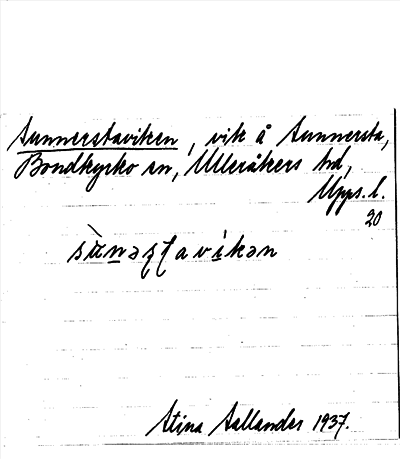 Sunnerstaviken, vik å Sunnersta,
Bondkyrko sn, Ulleråkers hd,
Upps. l.
20
Stina Sallander 1937.